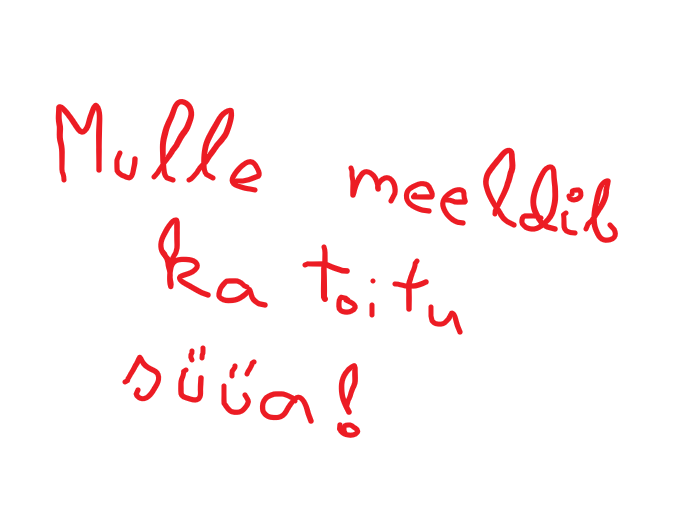 Mulle meeldib
ka toitu
süüa!